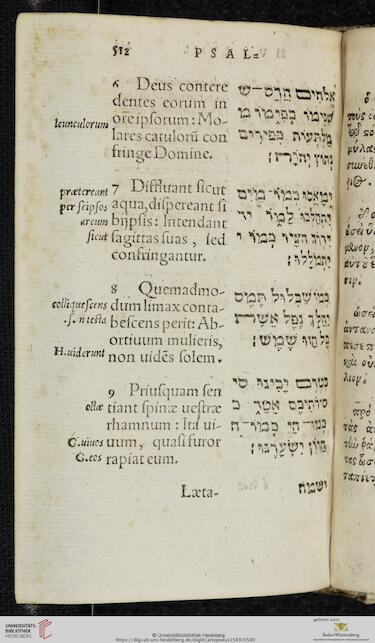 512
PSAL=
6 Deus contere
dentes eorum in
ore ipsorum: Mo-
leunculorum
lares catulorũ con
fringe Domine.
אלהים הרס־ש
שנימו בפימו מ
מלתעות כפירים
נתוץ יהוה׃
prætereant
per seipsos
arcum
sicut
7 Diffluant sicut
aqua, dispereant si
bijpsis: Intendant
sagittas suas, sed
confringantur.
ימאסו כמו־מים
יתהלכו למו יד
ידרך חציו כמו י
יתמללו׃
colliquescens
.s. in testa
H. uiderunt
8 Quemadmo-
dum limax conta-
bescens perit: Ab-
ortiuum mulieris,
non uidẽs solem.
כמו שבלול תמס
יהלך נפל אשת
בל חזו שמש׃
ollæ
G. uiuos
G. eos
9 Priusquam sen
tiant spinæ uestræ
rhamnum: Ita ui-
uum, quasi furor
rapiat eum.
בטרם יבינו סי
סירותיכם אטד כ
כמו־חי כמו־ח
חרון ישערנו׃
Læta-
ישמח
UNIVERSITÄTS-
BIBLIOTHEK
HEIDELBERG
© Universitätsbibliothek Heidelberg
https://digi.ub.uni-heidelberg.de/diglit/artopoeus1569/0580
gefördert durch
Baden-Württemberg